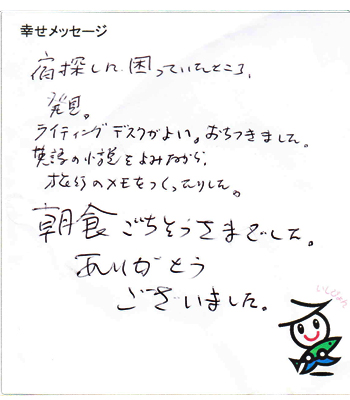 幸せメッセージ
宿探しに困っていたところ、
発見。
ライティングデスクがよい。おちつきました。
英語の小説をよみながら、
旅行のメモをつくったりした。
朝食ごちそうさまでした。
ありがとう
ございました。